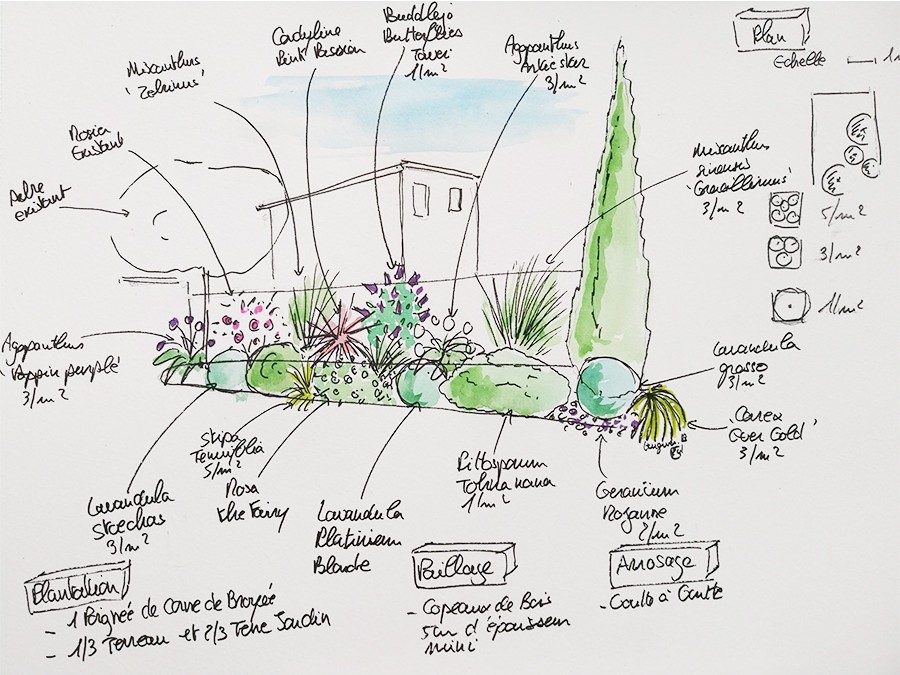 Buddleja
Butterflies
Tower
1/m²
Cordyline
Pink Passion
Agapanthus
3/m²
Miscanthus
'Zebrinus'
Plan
Echelle
Rosier
Existant
Arbre
existant
Miscanthus
sinensis
'Gracillimus'
3/m²
5/m²
3/m²
1/m²
Agapanthus
'Poppin purple'
3/m²
Lavandula
grosso
3/m²
'Carex
Ever Gold'
3/m²
Stipa
Tenuifolia
5/m²
Rosa
the Fairy
Lavandula
Stoechas
3/m²
Lavandula
Platinium
Blonde
Pittosporum
Tobira nana
1/m²
Geranium
Rozanne
2/m²
Plantation
- 1 Poignée de Corne de Broyée
- 1/3 Terreau et 2/3 Terre Jardin
Paillage
- Copeaux de Bois
5cm d'épaisseur
mini
Arrosage
- Goutte à Goutte